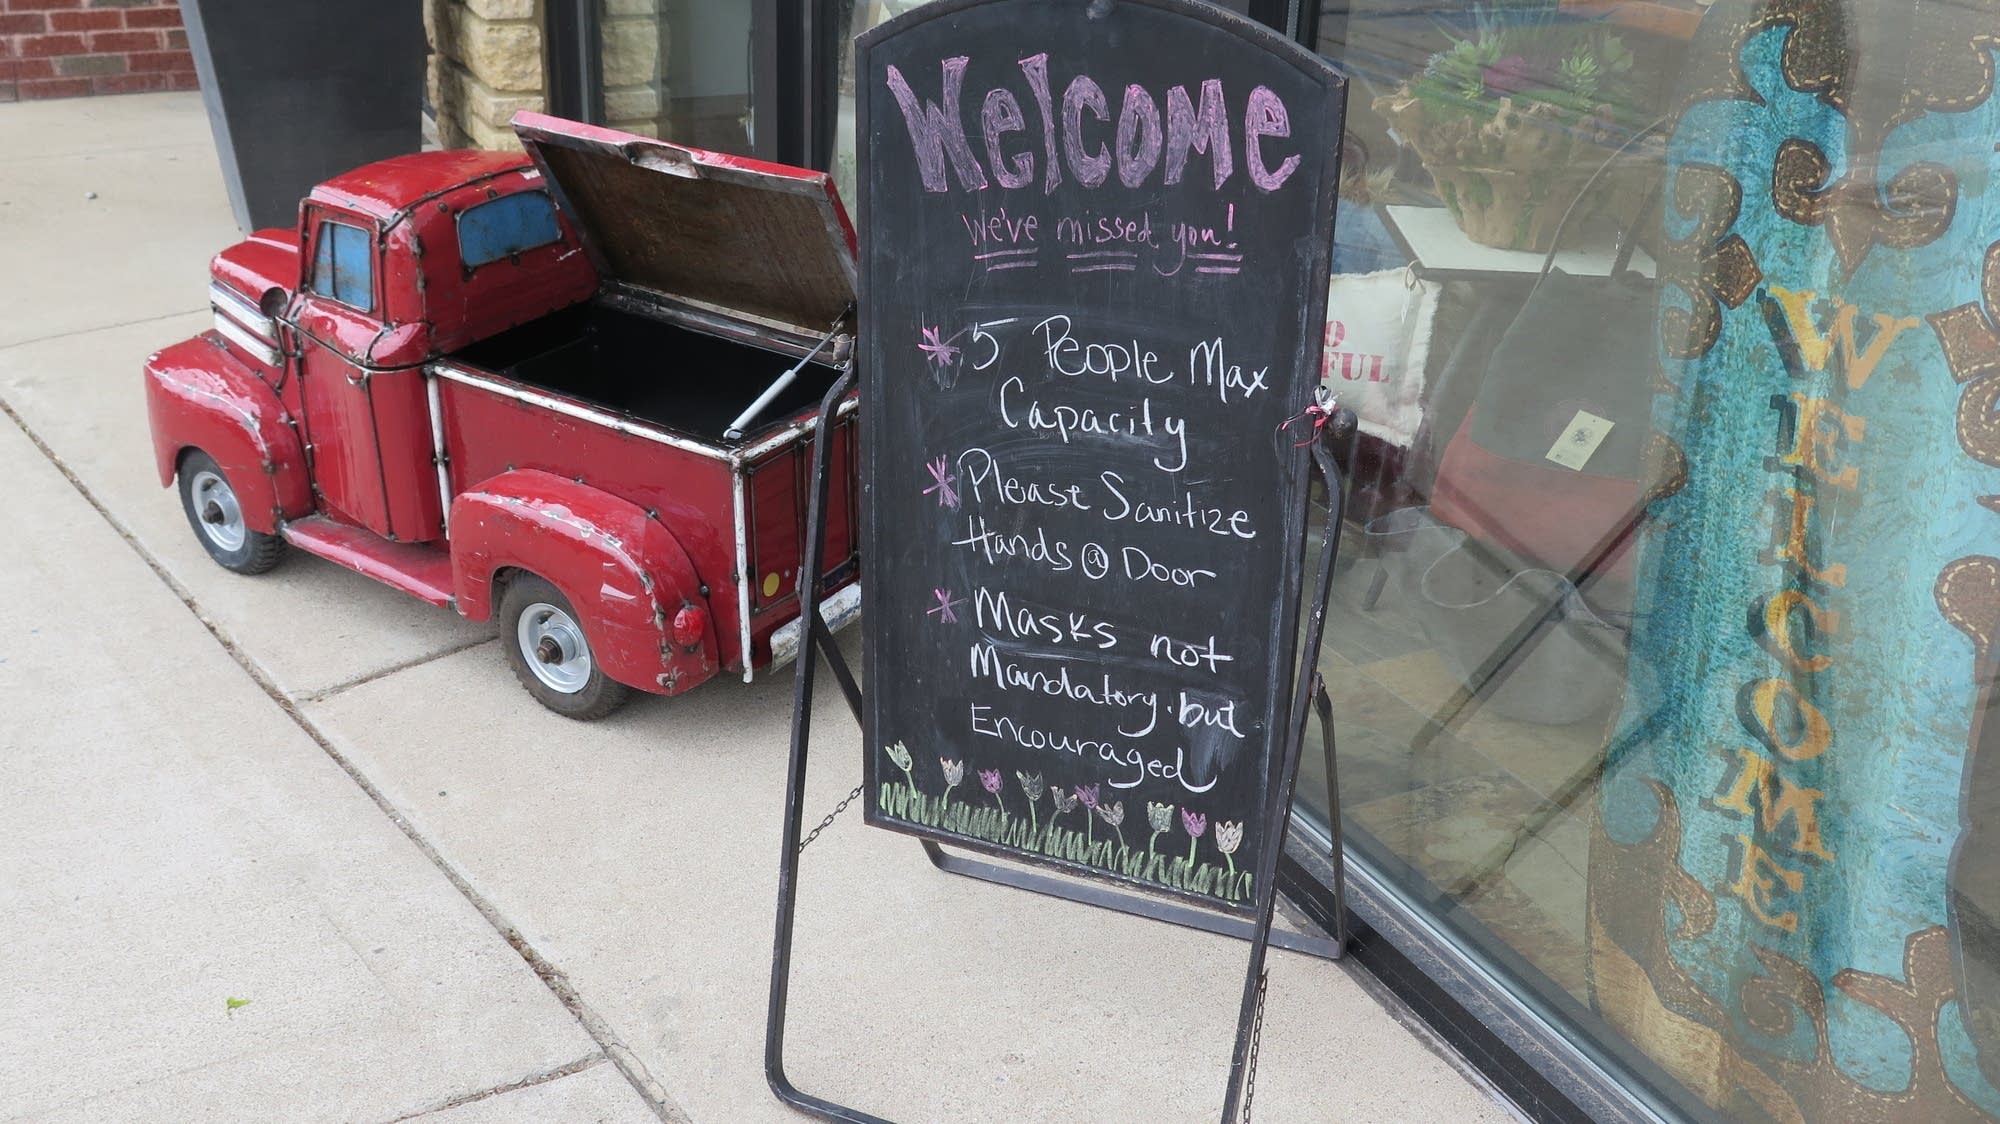 Welcome
We've missed you!
* 5 People Max
Capacity
* Please Sanitize
Hands @ Door
* Masks not
Mandatory. but
Encouraged
WELCOME